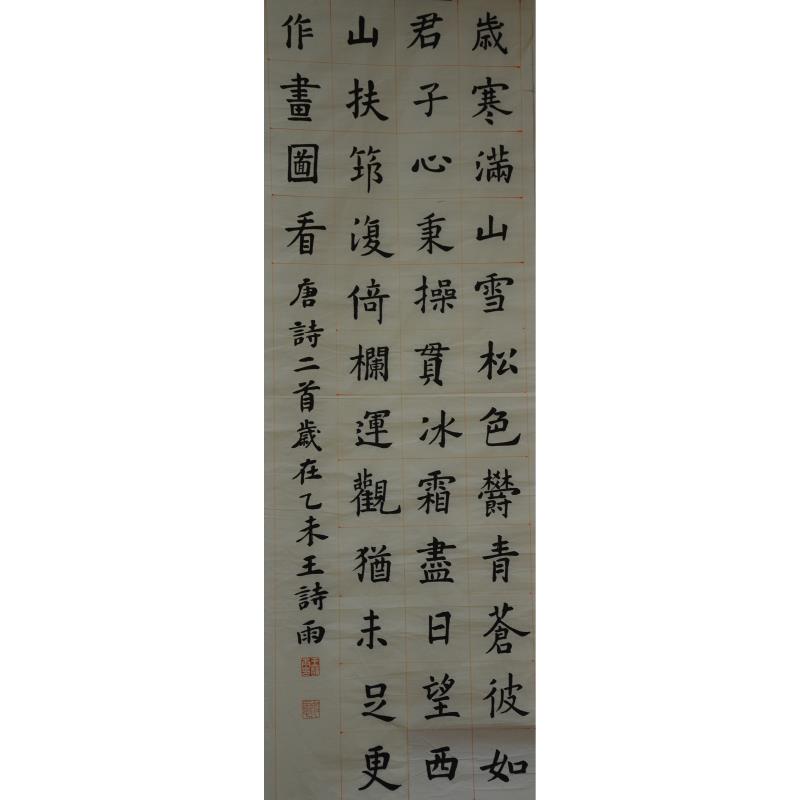 歳寒滿山雪松色欝青蒼彼如
君子心秉操貫冰霜盡日望西
山扶筇復倚欄運觀猶未足更
作畫圖看
唐詩二首歲在乙未王詩雨